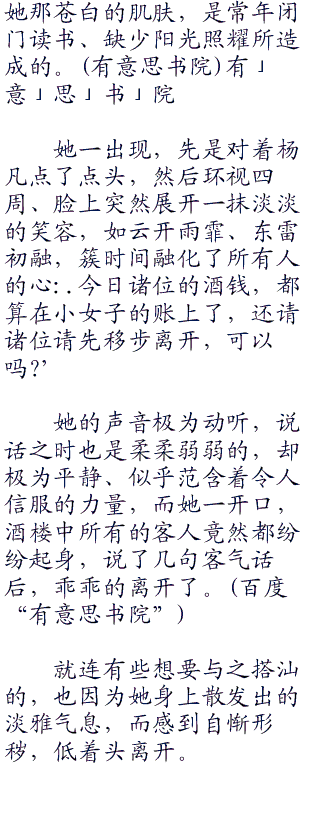 她那苍白的肌肤，是常年闭
门读书、缺少阳光照耀所造
成的。(有意思书院)有」
意」思」书」院
她一出现，先是对着杨
凡点了点头，然后环视四
周、脸上突然展开一抹淡淡
的笑容，如云开雨霏、东雷
初融，簇时间融化了所有人
的心:.今日诸位的酒钱，都
算在小女子的账上了，还请
诸位请先移步离开，可以
吗?’
她的声音极为动听，说
话之时也是柔柔弱弱的，却
极为平静、似乎范含着令人
信服的力量，而她一开口，
酒楼中所有的客人竟然都纷
纷起身，说了几句客气话
后，乖乖的离开了。(百度
“有意思书院”)
就连有些想要与之搭汕
的，也因为她身上散发出的
淡雅气息，而感到自惭形
秽，低着头离开。